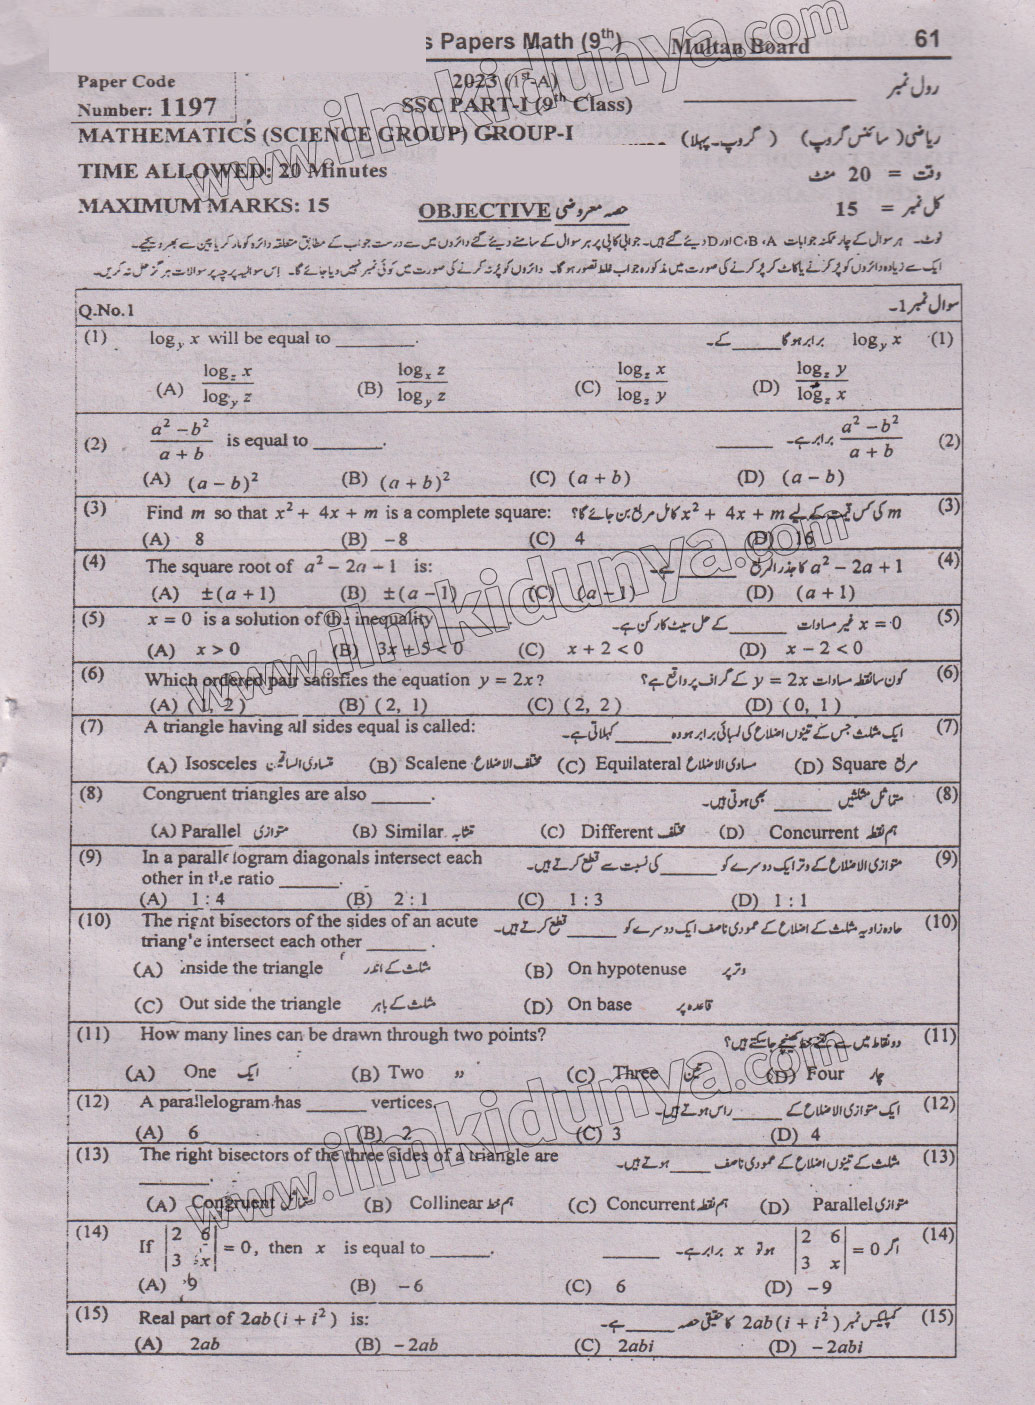 s Papers Math (9th) Multan Board 61
Paper Code 2023 (1st-A) رول نمبر
Number: 1197 SSC PART-I (9th Class)
MATHEMATICS (SCIENCE GROUP) GROUP-I ریاضی (سائنس گروپ) (گروپ۔پہلا)
TIME ALLOWED: 20 Minutes وقت = 20 منٹ
MAXIMUM MARKS: 15 OBJECTIVE حصہ معروضی کل نمبر = 15
نوٹ۔ ہر سوال کے چار ممکنہ جوابات A ،B ،C اور D دیئے گئے ہیں۔ جوابی کاپی پر ہر سوال کے سامنے دیئے گئے دائروں میں سے درست جواب کے مطابق متعلقہ دائرہ کو مارکر یا پین سے بھر دیجیے۔
ایک سے زیادہ دائروں کو پُر کرنے یا کاٹ کر پُر کرنے کی صورت میں مذکورہ جواب غلط تصور ہوگا۔ دائروں کو پُر نہ کرنے کی صورت میں کوئی نمبر نہیں دیا جائے گا۔ اِس سوالیہ پرچہ پر سوالات ہرگز حل نہ کریں۔
Q.No.1 سوال نمبر 1۔
(1) log_y x will be equal to ________. log_y x برابر ہوگا _____ کے۔ (1)
(A) log_z x / log_y z (B) log_x z / log_y z (C) log_z x / log_z y (D) log_z y / log_z x
(2) a² – b² / a + b is equal to _______. a² – b² / a + b برابر ہے۔ ______ (2)
(A) (a – b)² (B) (a + b)² (C) (a + b) (D) (a – b)
(3) Find m so that x² + 4x + m is a complete square: m کی کس قیمت کے لیے x² + 4x + m کامل مربع بن جائے گا؟ (3)
(A) 8 (B) – 8 (C) 4 (D) 16
(4) The square root of a² – 2a – 1 is: a² – 2a + 1 کا جذرالمربع ______ ہے۔ (4)
(A) ±(a + 1) (B) ±(a – 1) (C) (a – 1) (D) (a + 1)
(5) x = 0 is a solution of the inequality _______. x = 0 غیر مساوات ______ کے حل سیٹ کا رکن ہے۔ (5)
(A) x > 0 (B) 3x + 5 < 0 (C) x + 2 < 0 (D) x – 2 < 0
(6) Which ordered pair satisfies the equation y = 2x? کون سا نقطہ مساوات y = 2x کے گراف پر واقع ہے؟ (6)
(A) (1, 2) (B) (2, 1) (C) (2, 2) (D) (0, 1)
(7) A triangle having all sides equal is called: ایک مثلث جس کے تینوں اضلاع کی لمبائی برابر ہو وہ ______ کہلاتی ہے۔ (7)
(A) Isosceles متساوی الساقین (B) Scalene مختلف الاضلاع (C) Equilateral مساوی الاضلاع (D) Square مربع
(8) Congruent triangles are also ______. متماثل مثلثیں ______ بھی ہوتی ہیں۔ (8)
(A) Parallel متوازی (B) Similar متشابہ (C) Different مختلف (D) Concurrent ہم نقطہ
(9) In a parallelogram diagonals intersect each متوازی الاضلاع کے وتر ایک دوسرے کو ______ کی نسبت سے قطع کرتے ہیں۔ (9)
other in the ratio ______.
(A) 1 : 4 (B) 2 : 1 (C) 1 : 3 (D) 1 : 1
(10) The right bisectors of the sides of an acute حادہ زاویہ مثلث کے اضلاع کے عمودی ناصف ایک دوسرے کو _____ قطع کرتے ہیں۔ (10)
triangle intersect each other ______ .
(A) inside the triangle مثلث کے اندر (B) On hypotenuse وتر پر
(C) Out side the triangle مثلث کے باہر (D) On base قاعدہ پر
(11) How many lines can be drawn through two points? دو نقاط میں سے کتنے خط کھینچے جا سکتے ہیں؟ (11)
(A) One ایک (B) Two دو (C) Three تین (D) Four چار
(12) A parallelogram has ______ vertices. ایک متوازی الاضلاع کے _____ راس ہوتے ہیں۔ (12)
(A) 6 (B) 2 (C) 3 (D) 4
(13) The right bisectors of the three sides of a triangle are مثلث کے تینوں اضلاع کے عمودی ناصف _____ ہوتے ہیں۔ (13)
_______.
(A) Congruent متماثل (B) Collinear ہم خط (C) Concurrent ہم نقطہ (D) Parallel متوازی
(14) If |2 6| = 0, then x is equal to ______. اگر |2 6| = 0 ہو تو x برابر ہے۔ ______ (14)
|3 x| |3 x|
(A) 9 (B) – 6 (C) 6 (D) – 9
(15) Real part of 2ab(i + i²) is: کمپلیکس نمبر 2ab(i + i²) کا حقیقی حصہ _____ ہے۔ (15)
(A) 2ab (B) – 2ab (C) 2abi (D) – 2abi
www.ilmkidunya.com
www.ilmkidunya.com
www.ilmkidunya.com